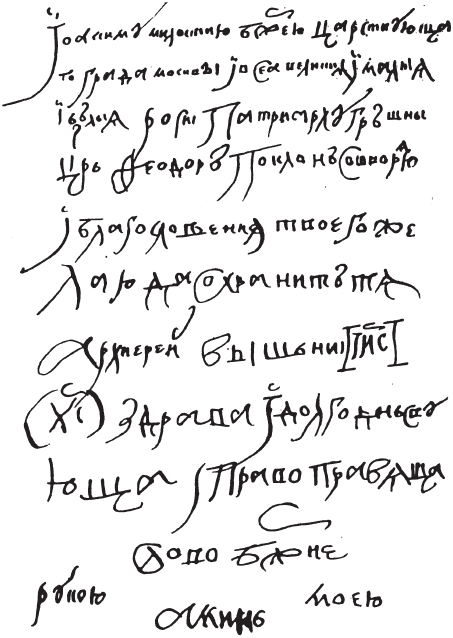 Іоакиму милостию бжею царствующа
го града москвы і всеа великия і малыя
і бѣлыя росиі патриарху грѣшны
црь Ѳеодоръ поклонъ сотворю
і благословения твоего же
лаю да охранитъ тя
архиереи вышьниі [IИС]
(ХС) здрава і долгоденьству
юща і право правяща
слово бжие
рукою моею
аминь